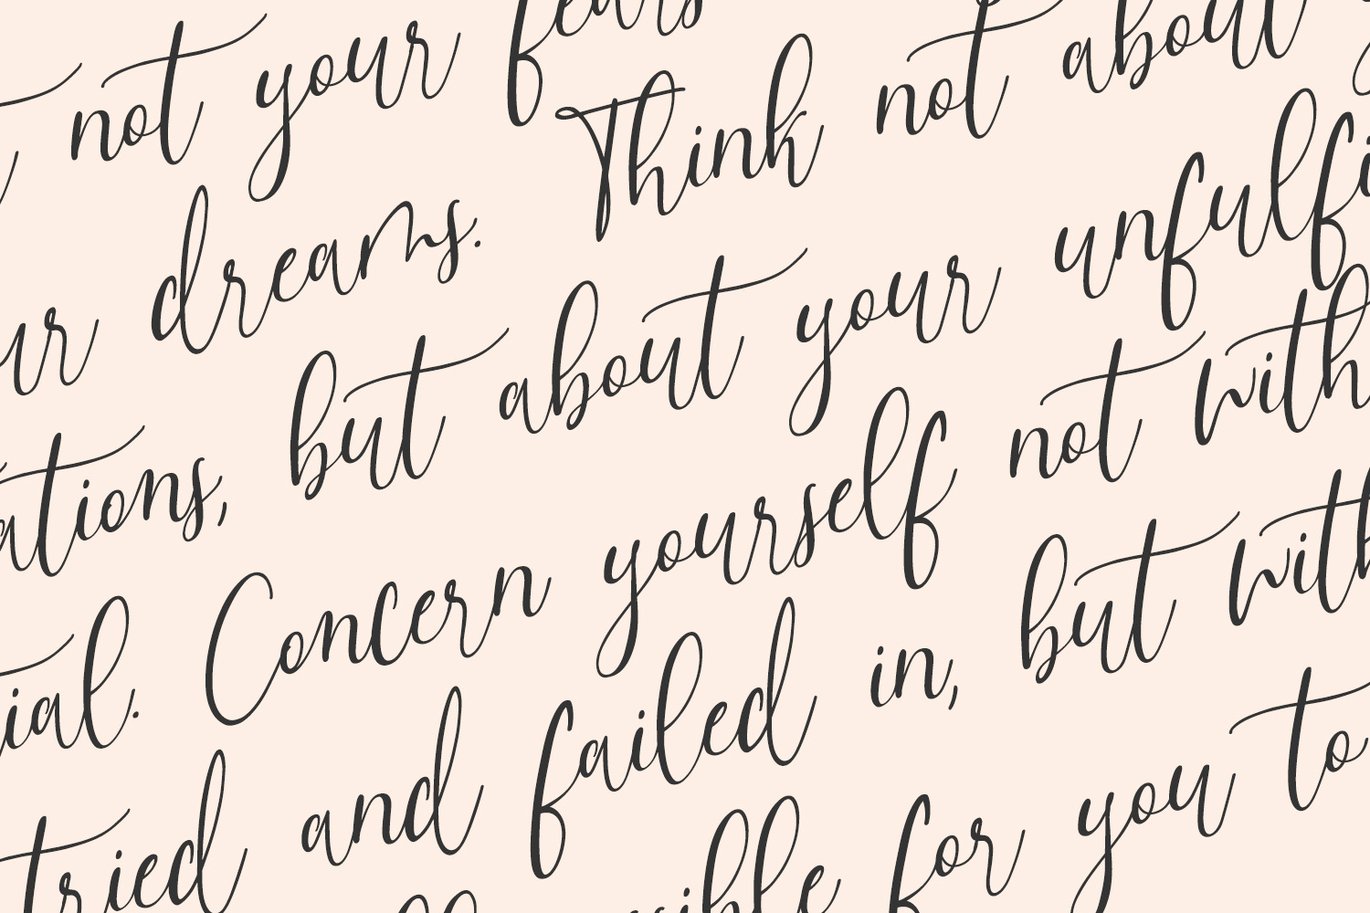 not your fears
ur dreams. Think not about
ations, but about your unfulfi
ial. Concern yourself not with
tried and failed in, but with
sible for you to